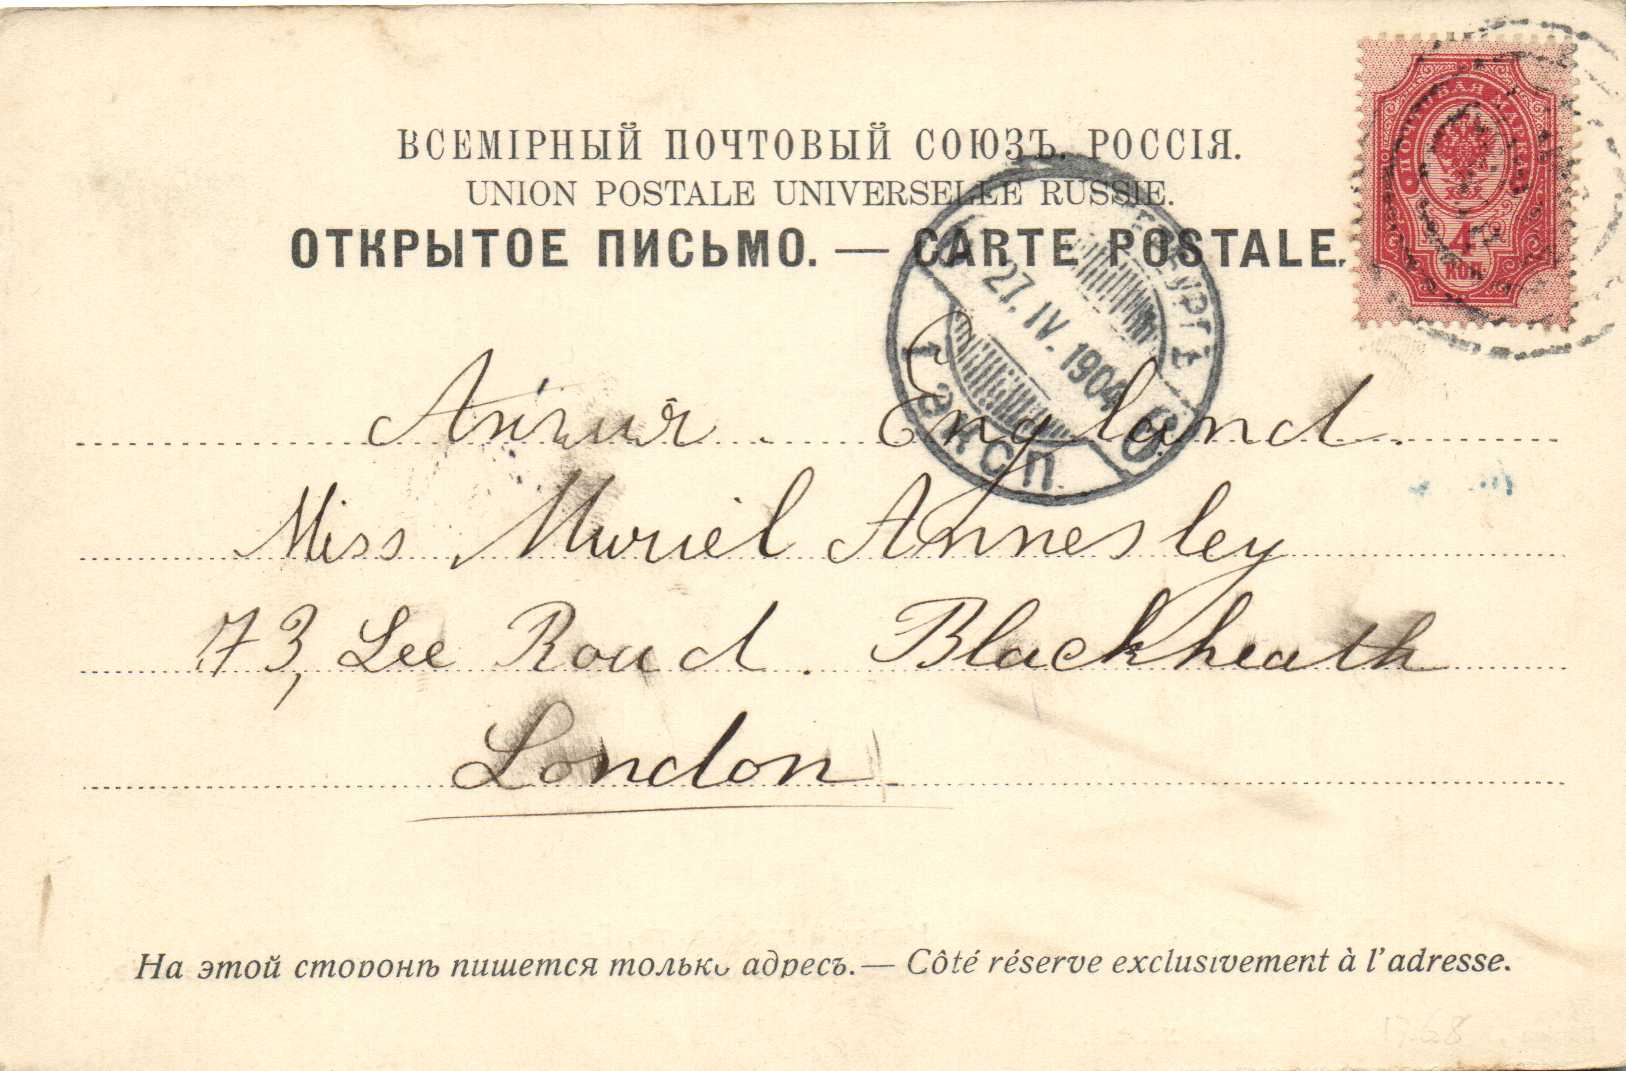 ВСЕМІРНЫЙ ПОЧТОВЫЙ СОЮЗЪ. РОССІЯ.
UNION POSTALE UNIVERSELLE RUSSIE.
ОТКРЫТОЕ ПИСЬМО. — CARTE POSTALE.
ПОЧТОВАЯ МАРКА
4
КОП
27. IV. 1904
1 ЭКСП.
Англія. England.
Miss Muriel Annesley
73, Lee Road. Blackheath
London
На этой сторонѣ пишется только адресъ. — Côté réserve exclusivement à l'adresse.